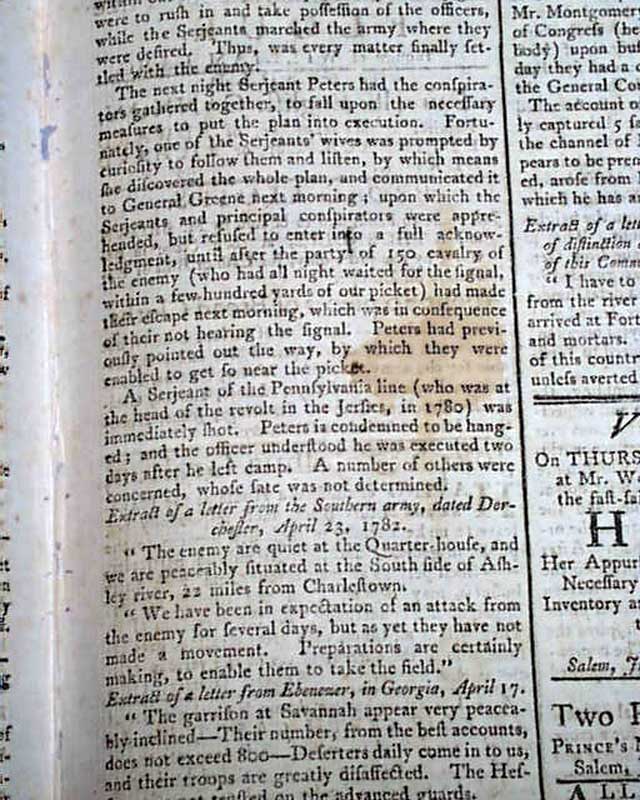 were to rush in and take possession of the officers,
while the Serjeants marched the army where they
were desired. Thus, was every matter finally set-
tled with the enemy.
The next night Serjeant Peters had the conspira-
tors gathered together, to fall upon the necessary
measures to put the plan into execution. Fortu-
nately, one of the Serjeants' wives was prompted by
curiosity to follow them and listen, by which means
she discovered the whole plan, and communicated it
to General Greene next morning; upon which the
Serjeants and principal conspirators were appre-
hended, but refused to enter into a full acknow-
ledgment, until after the party of 150 cavalry of
the enemy (who had all night waited for the signal,
within a few hundred yards of our picket) had made
their escape next morning, which was in consequence
of their not hearing the signal. Peters had previ-
ously pointed out the way, by which they were
enabled to get so near the picket.
A Serjeant of the Pennsylvania line (who was at
the head of the revolt in the Jersies, in 1780) was
immediately shot. Peters is condemned to be hang-
ed; and the officer understood he was executed two
days after he left camp. A number of others were
concerned, whose fate was not determined.
Extract of a letter from the Southern army, dated Dor-
chester, April 23, 1782.
" The enemy are quiet at the Quarter-house, and
we are peaceably situated at the South side of Ash-
ley river, 22 miles from Charlestown.
" We have been in expectation of an attack from
the enemy for several days, but as yet they have not
made a movement. Preparations are certainly
making, to enable them to take the field."
Extract of a letter from Ebenezer, in Georgia, April 17.
" The garrison at Savannah appear very peacea-
bly inclined—Their number, from the best accounts,
does not exceed 800—Deserters daily come in to us,
and their troops are greatly disaffected. The Hes-
on the advanced guards.
Mr. Montgomer
of Congress (he
body) upon bu
day they had a
the General Cou
The account o
ly captured 5 sa
the channel of
pears to be pren
ed, arose from
which he has a
Extract of a lett
of distinction
of this Comm
" I have to
from the river
arrived at Fort
and mortars.
of this countr
unless averted
V
On THURS
at Mr. W
the fast-sa
H
Her Appur
Necessary
Inventory a
t
Salem, J
Two P
PRINCE'S
Salem,
ALL